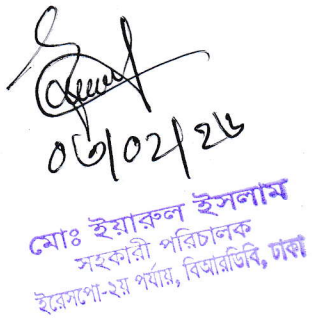 ০৩/০২/২৬
মোঃ ইয়ারুল ইসলাম
সহকারী পরিচালক
ইরেসপো-২য় পর্যায়, বিআরডিবি, ঢাকা